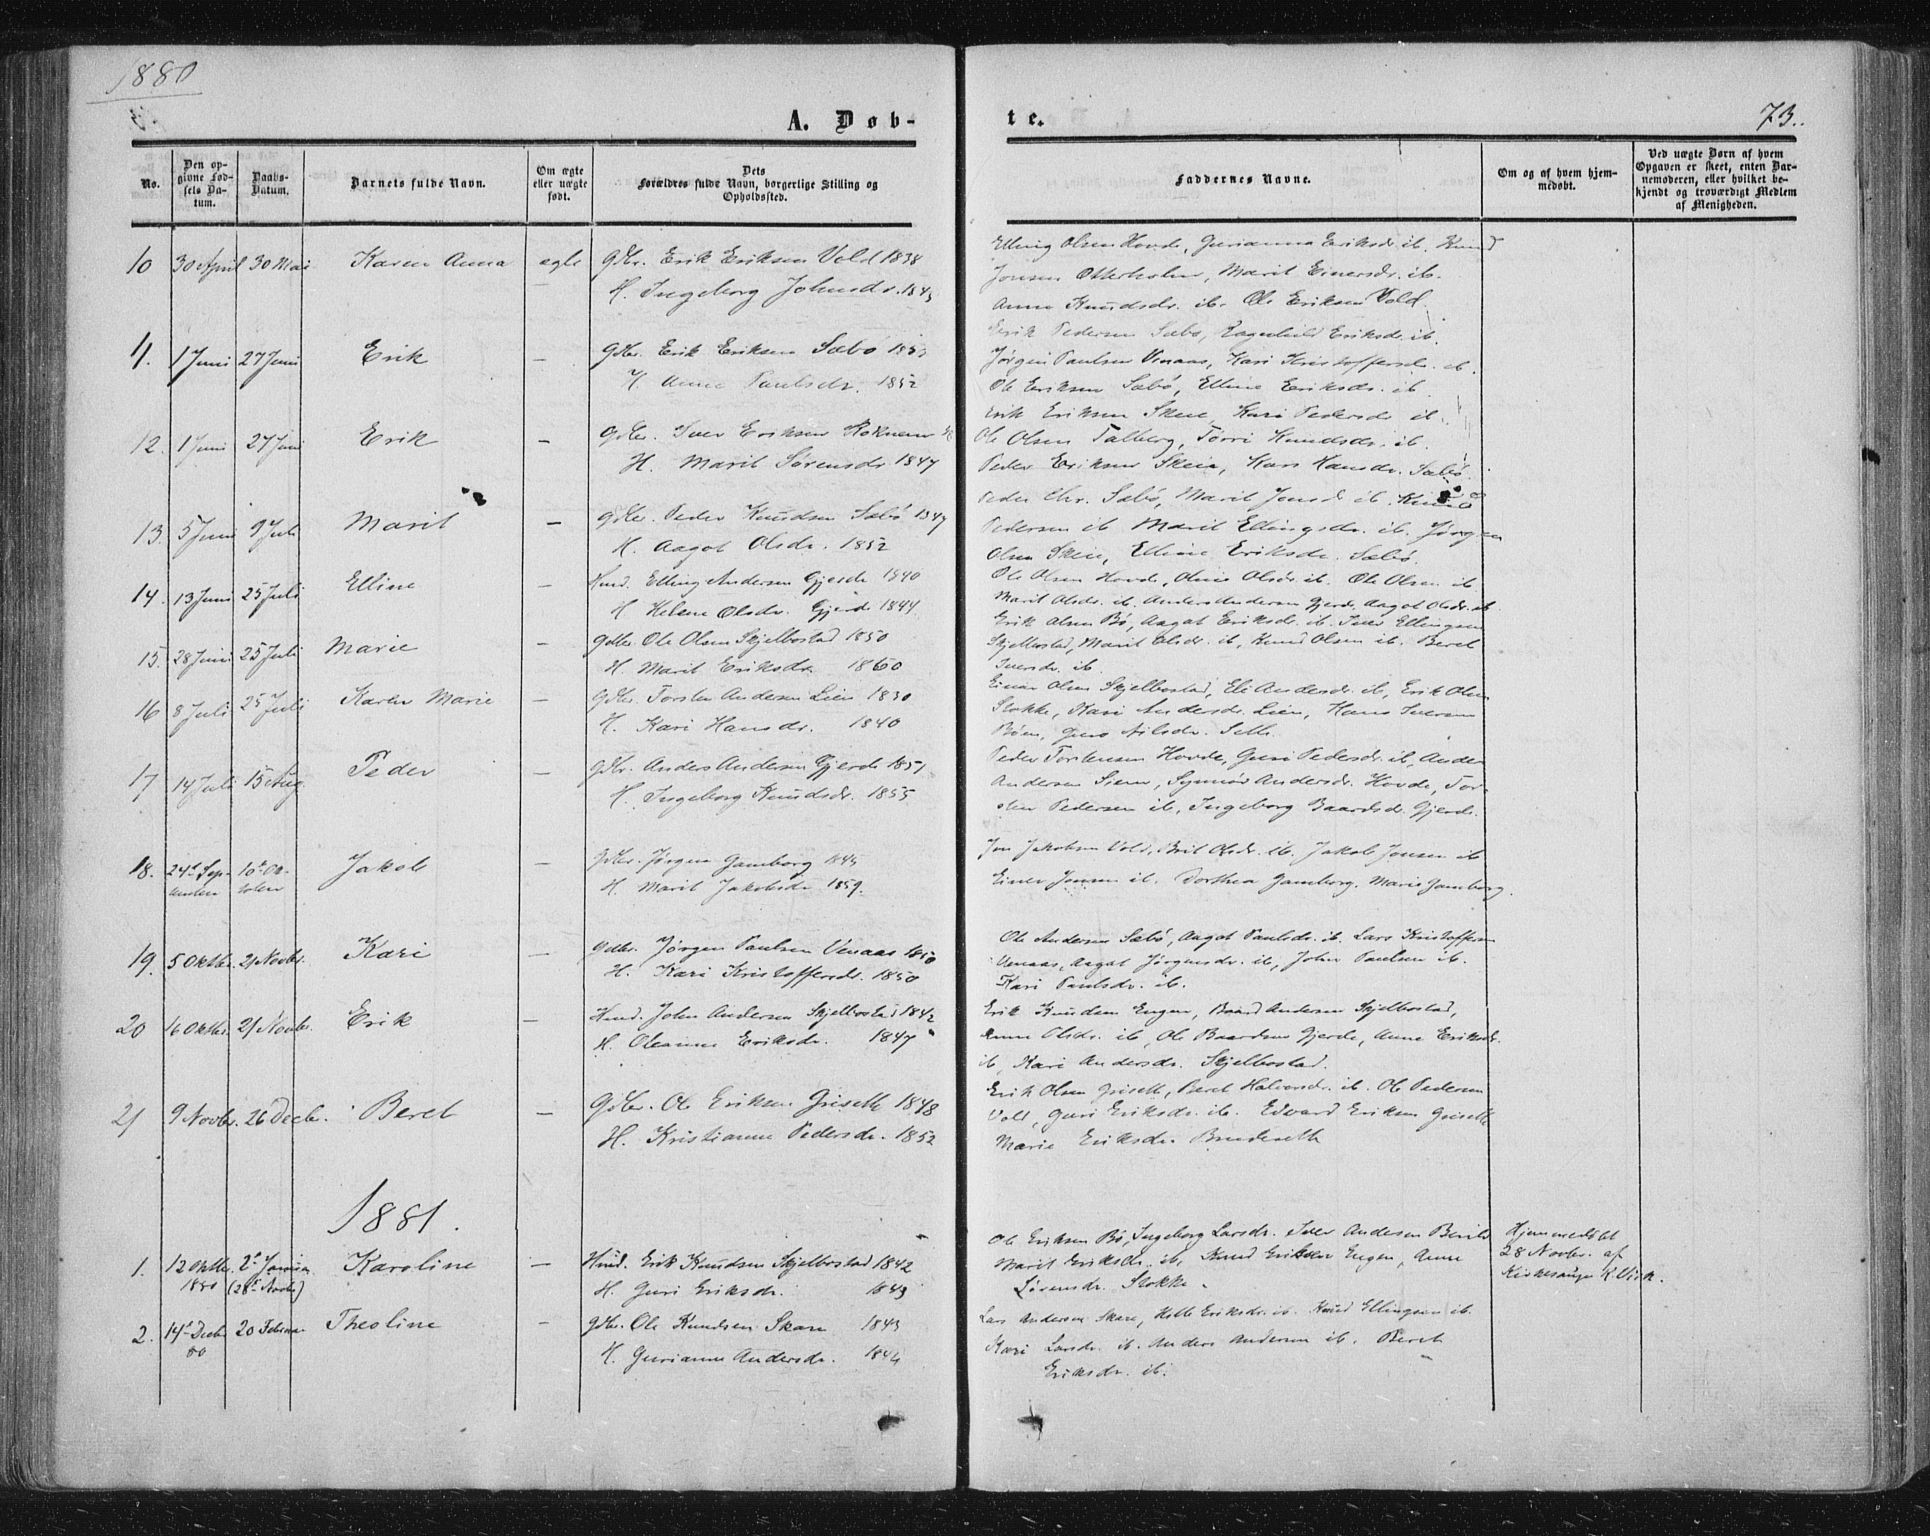 1880
A. Døb-
te.
73.
No.
Den opgivne Fødsels Datum.
Daabs-Datum.
Barnets fulde Navn.
Om ægte eller uægte født.
Dets Forældres fulde Navn, borgerlige Stilling og Opholdssted.
Faddernes Navne.
Om og af hvem hjemmedøbt.
Ved uægte Børn af hvem Opgaven er skeet, enten Barnemoderen, eller hvilket bekjendt og troværdigt Medlem af Menigheden.
10 30 April 30 Mai Karen Anna ægte Gdbr. Erik Eriksen Vold 1838
H. Ingeborg Johnsdr.
Elling Olsen Hovde, Gurianna Eriksdr. ib. Knud
Jonsen Otterholm, Marit Einersdr. ib.
Anne Knudsdr. ib. Ole Eriksen Vold.
11. 1 Juni 27 Juni Erik — Gdbr. Erik Eriksen Sæbø
H. Anne Paulsdr. 1852
Erik Pedersen Sæbø, Ragnhild Eriksdr. ib.
Jørgen Paulsen Venaas, Kari Kristoffersdr. ib.
Ole Eriksen Sæbø, Elline Eriksdr. ib
12. 1 Juni 27 Juni Erik — Gdbr. Iver Eriksen
H. Marit Sørensdr. 1847
Erik Eriksen Skeie, Kari Pedersdr. ib.
Ole Olsen Talberg, Torri Knudsdr. ib.
Peder Eriksen Skeie, Kari Hansdr. Sæbø.
13. 5 Juni 9 Juli Marit — Gdbr. Peder Knudsen Sæbø 1847
H. Aagot Olsdr. 1852
Peder Chr. Sæbø, Marit Jonsd. ib. Knud
Pedersen ib Marit Ellingsdr. ib. Jørgen
Olsen Skeie, Elline Eriksdr. Sæbø.
14. 13 Juni 25 Juli Elline — Hmd. Elling Andersen Gjerde 1840
H Helene Olsdr. Gjerd 1844.
Ole Olsen Hovde, Olsdr. ib. Ole Olsen ib
Marit Olsdr. ib. Anders Andersen Gjerde, Aagot Olsdr. ib
15. 28 Juni 25 Juli Marie — Gdbr. Ole Olsen Skjelbostad 1850
H. Marit Eriksdr. 1860
Erik Olsen Bø, Aagot Eriksdr. ib. Iver Ellingsen
Skjelbostad, Marit Olsdr. ib, Knud Olsen ib. Beret
Iversdr. ib.
16 8 Juli 25 Juli Karen Marie — Gdbr. Torsten Andersen Lien 1830
H. Kari Hansdr. 1840
Einar Olsen Skjelbostad, Eli Andersdr. ib, Erik Olsen
Stokke, Kari Andersdr. Lien, Hans Iversen
Bøen, Guro Nilsdr. Sette.
17 14 Juli 15 Aug. Peder — Gdbr. Anders Andersen Gjerde 1851
H. Ingeborg Knudsdr. 1855
Peder Torstensen Hovde, Guri Pedersdr. ib, Anders
Andersen Siem, Synnøv Andersdr. Hovde, Tor-
sten Pedersen ib, Ingeborg Baardsdr. Gjerde.
18. 24de September 10de October Jakob — Gdbr. Jørgen Gamborg
H. Marit Jakobsdr 1859.
Jon Jakobsen Vold, Brit Olsdr. ib. Jakob Jonsen ib
Einer Jonsen ib. Dorthea Gamborg. Marie Gamborg.
19. 5 Oktbr. 21 Novbr. Kari — Gdbr. Jørgen Paulsen Venaas 1850
H. Kari Kristoffersdr. 1850
Ole Andersen Sæbø, Aagot Paulsdr. ib. Lars Kristoffersen
Venaas, Aagot Jørgensdr. ib, John Paulsen ib.
Kari Paulsdr. ib.
20 16 Oktbr. 21 Novbr. Erik — Hmd. John Andersen Skjelbostad 1842
H. Oleanna Eriksdr. 1847
Erik Knudsen Engen, Baard Andersen Skjelbostad,
Anne Olsdr. ib, Ole Baardsen Gjerde, Anne Eriksdr.
ib, Kari Andersdr. Skjelbostad.
21 9 Novbr. 26 Decbr. Beret — Gdbr. Ole Eriksen Griseth 1848
H. Kristianne Pedersdr. 1852
Erik Olsen Griseth, Beret Halvorsdr. ib. Ole Pedersen
Vold, Guri Eriksdr. ib. Edvard Eriksen Griseth
Marie Eriksdr.
1881.
1. 12 Oktbr. 1880 2den Januar (28de Novbr) Karoline — Hmd. Erik Knudsen Skjelbostad 1842
H. Guri Eriksdr. 1843
Ole Eriksen Bø, Ingeborg Larsdr. Iver Andersen
Marit Eriksdr. ib, Knud Eriksen Engen, Anne
Sørensdr. Stokke.
Hjemmedøbt
28 Novbr. af
Kirkesanger K. Viik.
2. 14de Decbr 80 20 Februar Theoline — Gdbr. Ole Knudsen Skare 1843
H. Gurianne Andersdr. 1844
Lars Andersen Skare, Helle Eriksdr. ib. Knud Ellingsen ib
Kari Larsdr. ib. Anders Andersen ib. Beret
Eriksdr. ib.